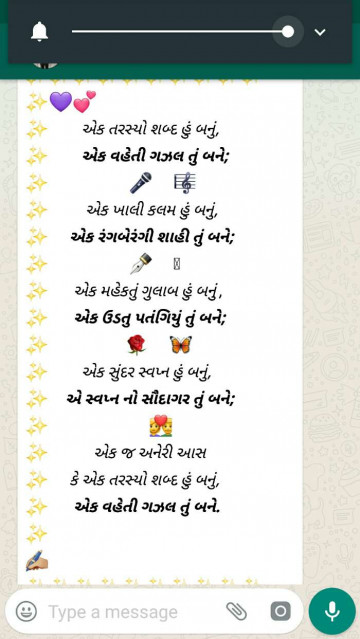 એક તરસ્યો શબ્દ હું બનું,
એક વહેતી ગઝલ તું બને;
એક ખાલી કલમ હું બનું,
એક રંગબેરંગી શાહી તું બને;
એક મહેકતું ગુલાબ હું બનું,
એક ઉડતુ પતંગિયું તું બને;
એક સુંદર સ્વપ્ન હું બનું,
એ સ્વપ્ન નો સૌદાગર તું બને;
એક જ અનેરી આસ
કે એક તરસ્યો શબ્દ હું બનું,
એક વહેતી ગઝલ તું બને.
Type a message